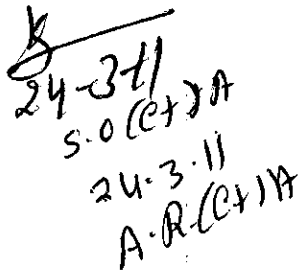 24-3-11
S.O (C+) A
24.3.11
A.R.(C+) A